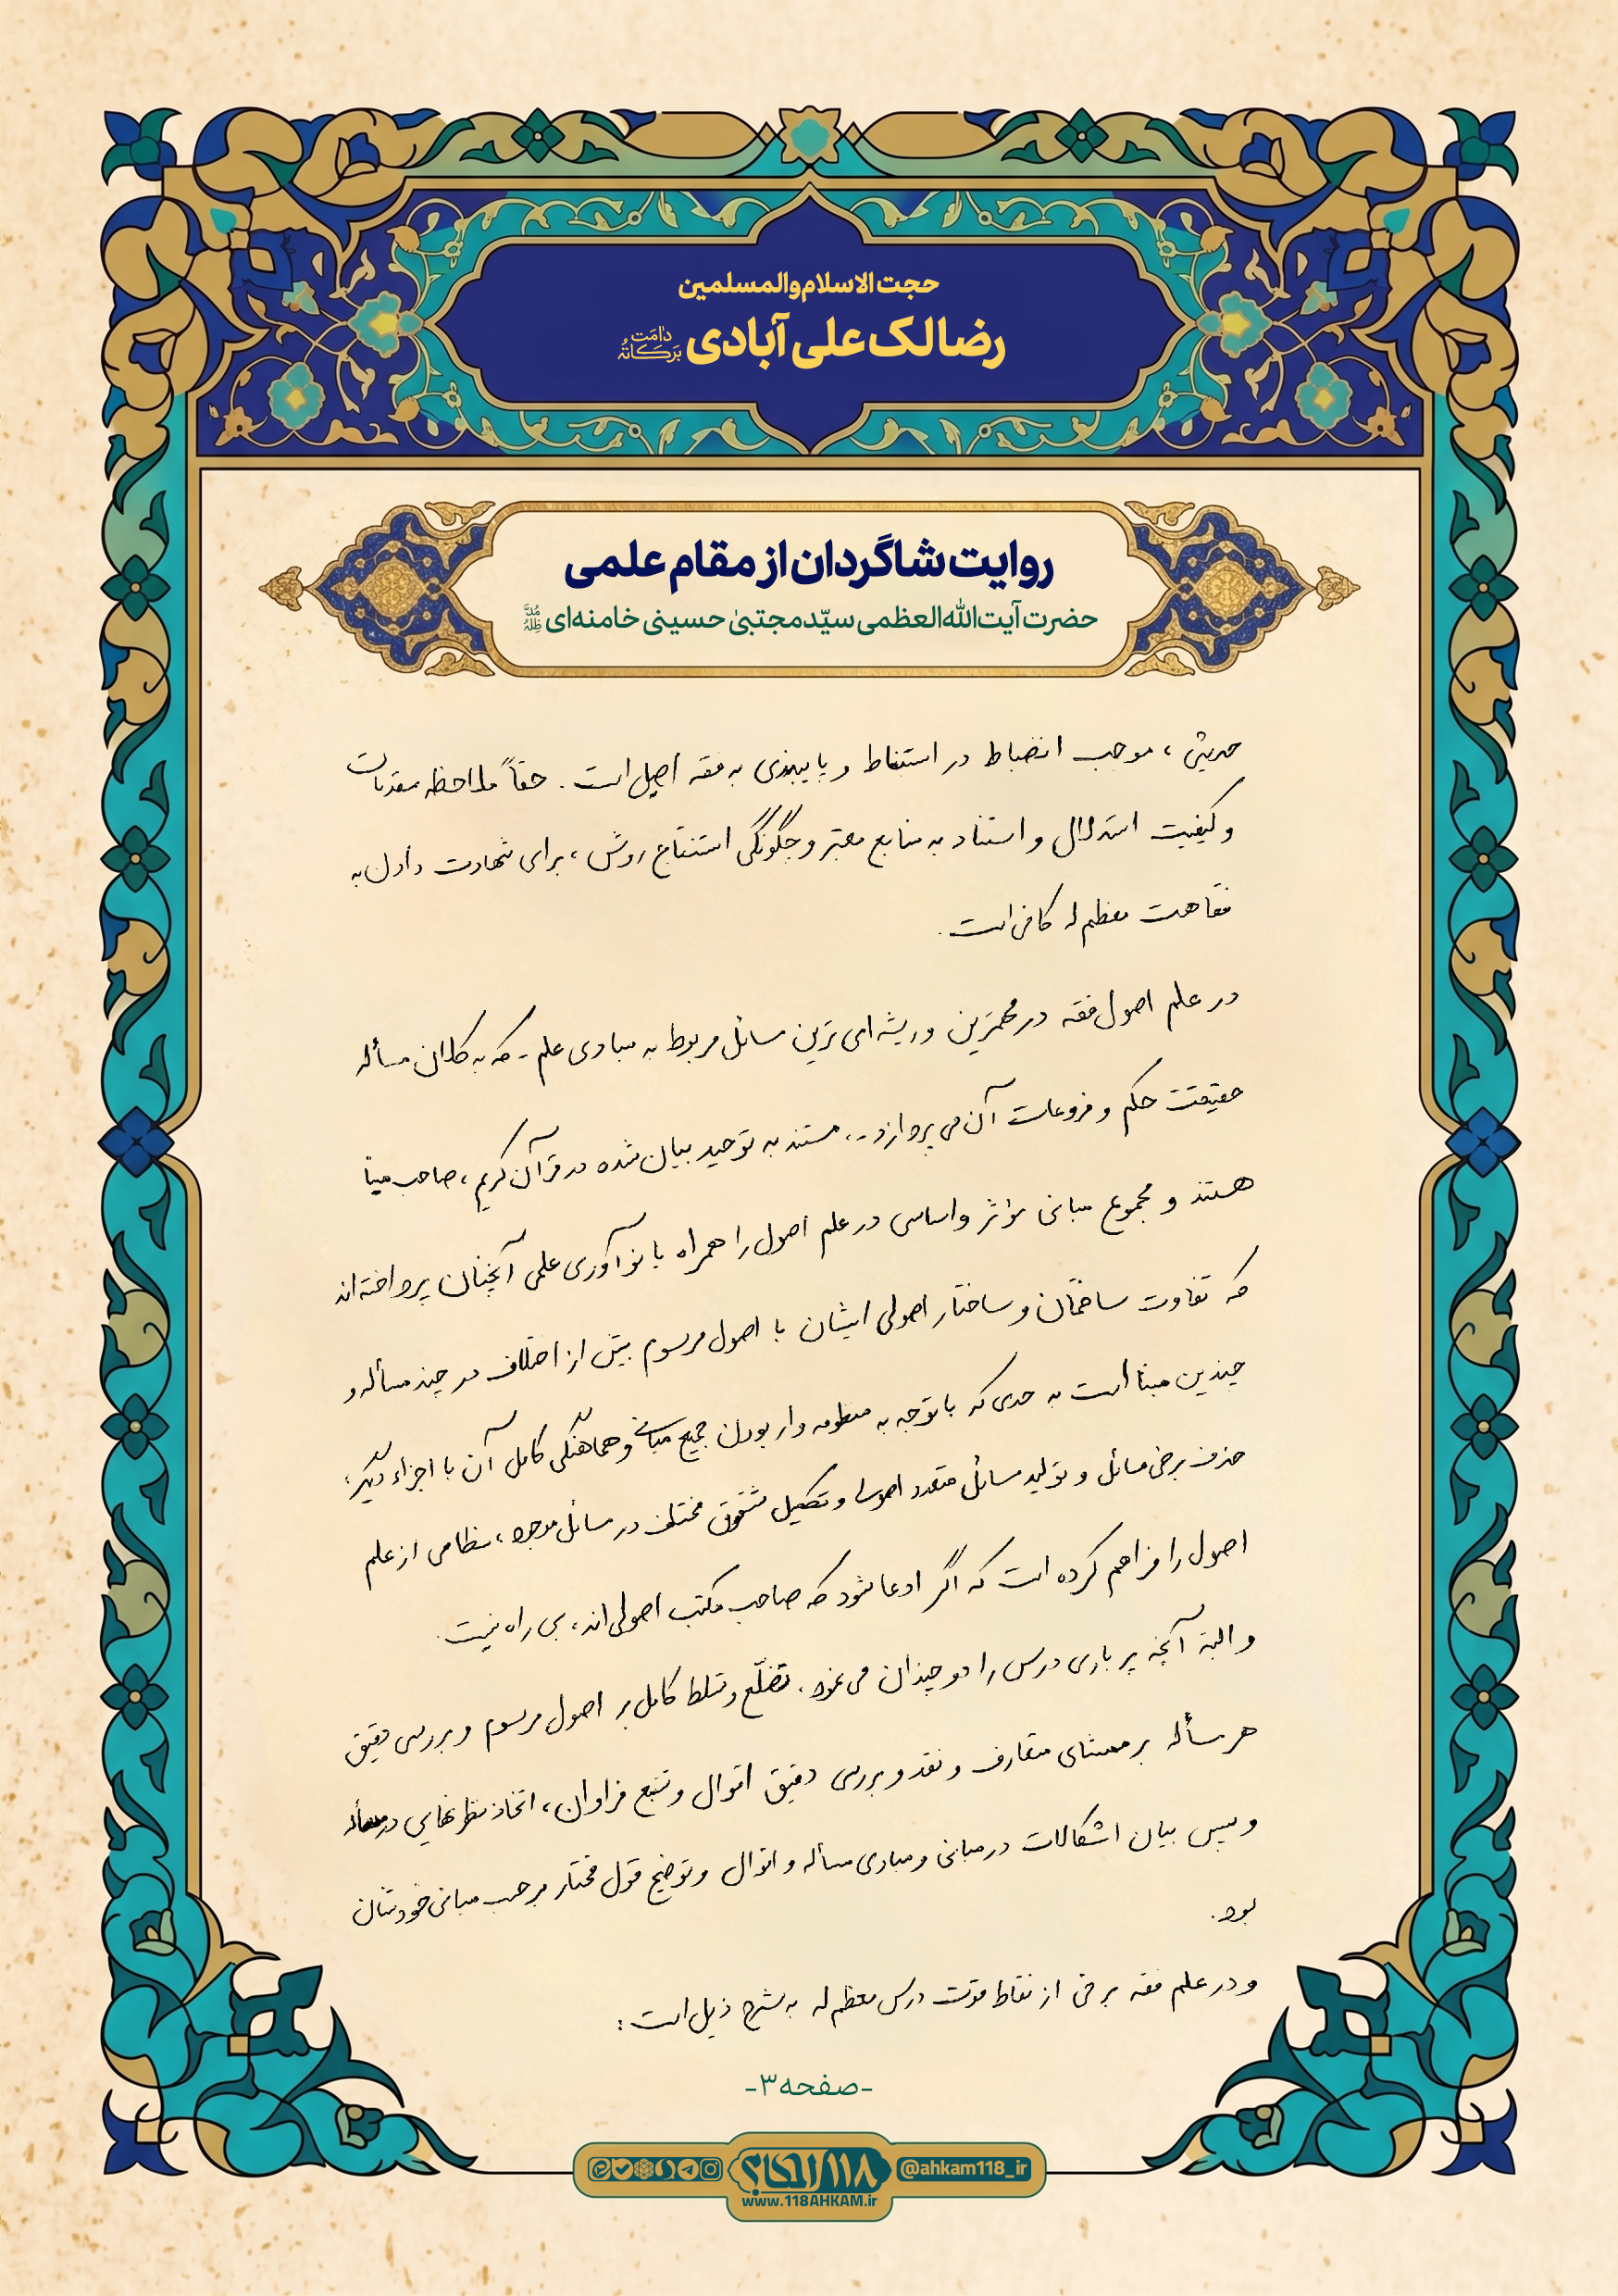 حجت الاسلام والمسلمین
رضا لک علی آبادی دامَت بَرَکاتُهُ
روایت شاگردان از مقام علمی
حضرت آیت‌الله‌العظمی سیّدمجتبیٰ حسینی خامنه‌ای مُدَّ ظِلُّهُ
حدیثی، موجب انضباط در استنباط و پایبندی به فقه اصیل است. حقاً ملاحظه مقدمات
و کیفیت استدلال و استناد به منابع معتبر و چگونگی استنتاج روش، برای شهادت دادن به
فقاهت معظم له کافی است.
در علم اصول فقه در مهمترین و ریشه‌ای ترین مسائل مربوط به مبادی علم - که به کلان مسأله
حقیقت حکم و فروعات آن می پردازد -، مستند به توحید بیان شده در قرآن کریم، صاحب مبنا
هستند و مجموع مبانی مؤثر و اساسی در علم اصول را همراه با نوآوری علمی آنچنان پرداخته‌اند
که تفاوت ساختمان و ساختار اصولی ایشان با اصول مرسوم بیش از اختلاف در چند مسأله و
چندین مبنا است به حدی که با توجه به منظومه وار بودن جمیع مبانی و هماهنگی کامل آن با اجزاء دیگر،
حذف برخی مسائل و تولید مسائل متعدد اصولی و تکمیل شقوق مختلف در مسائل موجود، نظامی از علم
اصول را فراهم کرده است که اگر ادعا شود که صاحب مکتب اصولی‌اند، بی راه نیست.
و البته آنچه پر باری درس را دو چندان می نمود. تضلّع و تسلط کامل بر اصول مرسوم و بررسی دقیق
هر مسأله بر ممشای متعارف و نقد و بررسی دقیق اقوال و تتبع فراوان، اتخاذ نظر نهایی در مسأله
و سپس بیان اشکالات در مبانی و مبادی مسأله و اقوال و توضیح قول مختار بر حسب مبانی خودشان
بود.
و در علم فقه برخی از نقاط قوت درس معظم له به شرح ذیل است:
-صفحه ۳-
@ahkam118_ir
۱۱۸ احکام
www.118AHKAM.ir